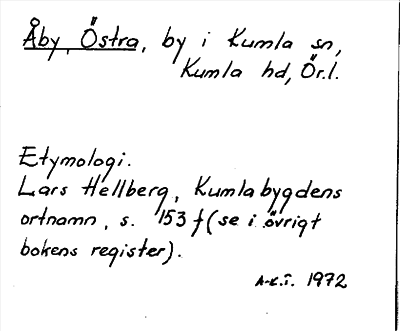 Åby, Östra, by i Kumla sn,
Kumla hd, Ör.l.
Etymologi.
Lars Hellberg, Kumlabygdens
ortnamn, s. 153 f (se i övrigt
bokens register).
A-C.T. 1972